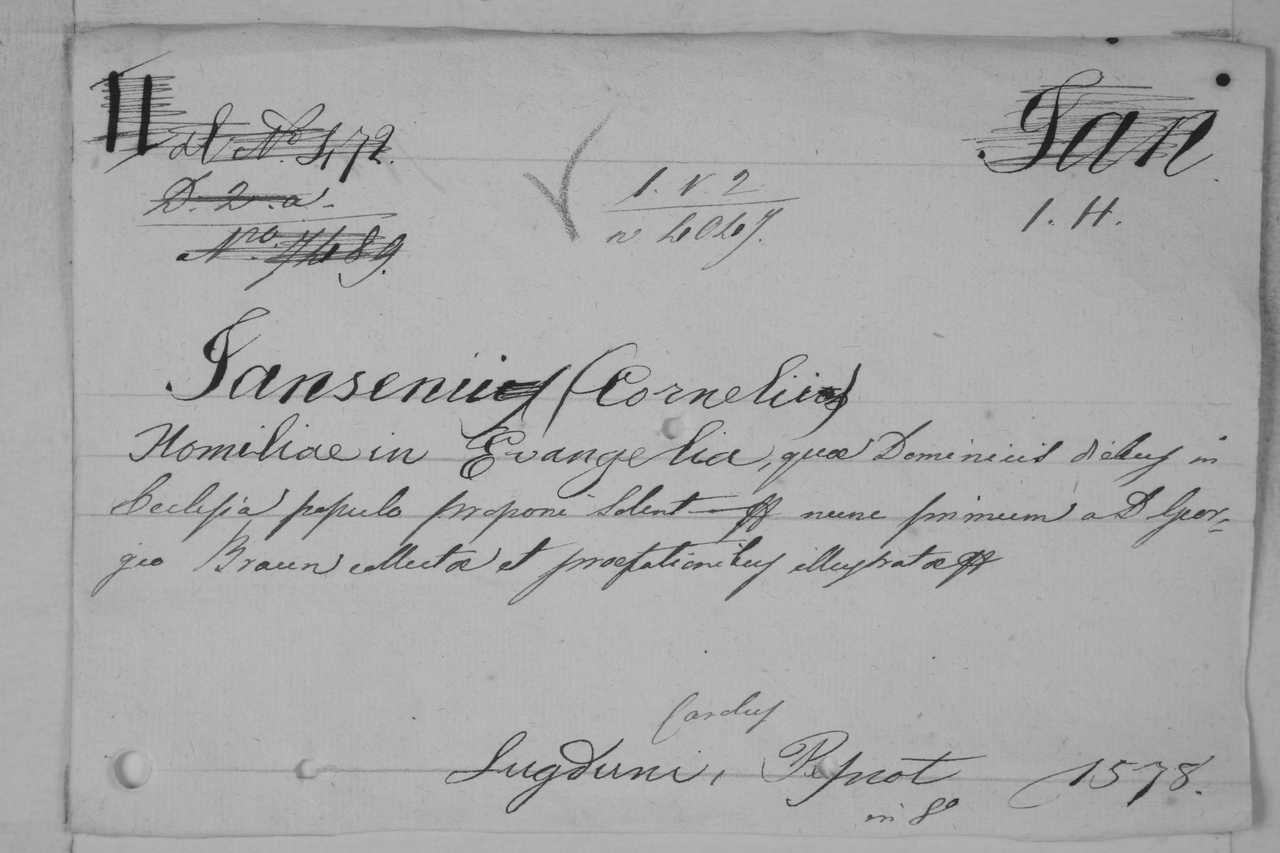 II
al. No. 472.
D. 2. a.
Nro. 7489.
1. V. 2
n 4047.
Jan
1. H.
Jansenius (Cornelius)
Homiliae in Evangelia, quae Dominicis diebus in
Ecclesia populo proponi solent nunc primum a D Geor-
gio Braun collectae et praefationibus illustratae
Carolus
Lugduni, Pesnot 1578.
in 8o